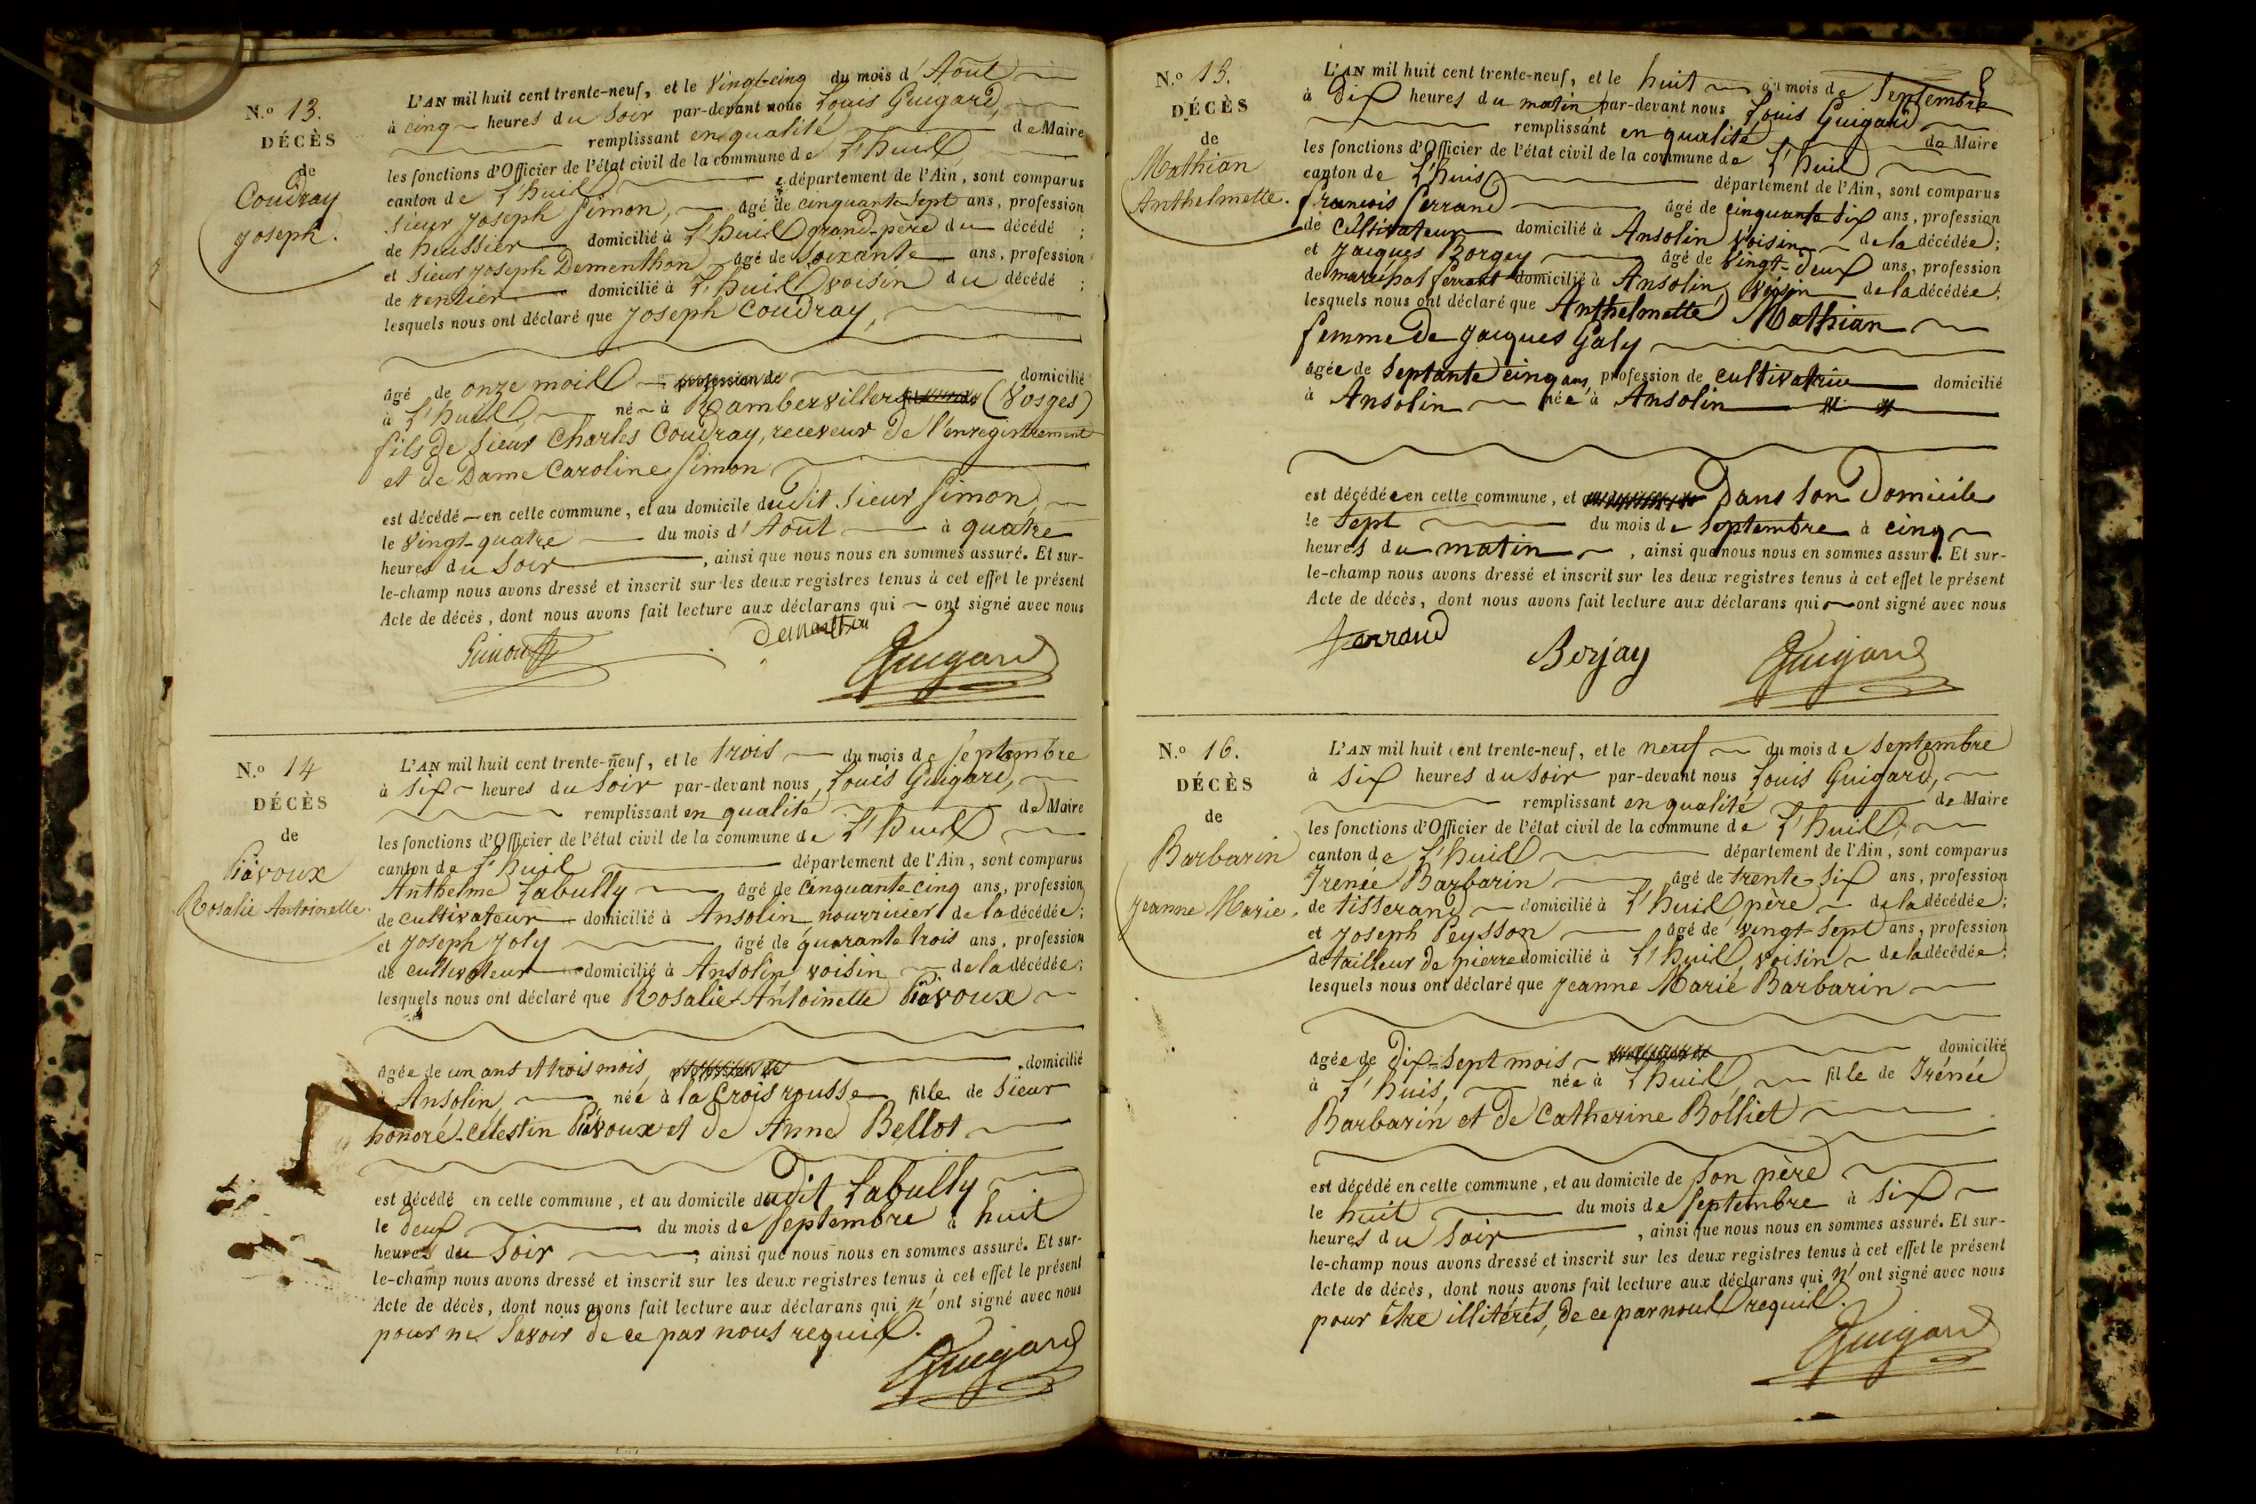 N.o 13.
DÉCÈS
de
Coudray
Joseph.
L'AN mil huit cent trente-neuf, et le vingt-cinq du mois d'Août
à cinq heures du soir par-devant nous Louis Guigard,
remplissant en qualité de Maire
les fonctions d'Officier de l'état civil de la commune de L'huis
canton de L'huis département de l'Ain, sont comparus
Sieur Joseph Simon, âgé de cinquante-sept ans, profession
de huissier domicilié à L'huis grand-père du décédé ;
et Sieur Joseph Dementhon âgé de soixante ans, profession
de rentier domicilié à L'huis voisin du décédé ;
lesquels nous ont déclaré que Joseph Coudray,
âgé de onze mois profession de domicilié
à L'huis, né à Rambervillers (Vosges)
fils de Sieur Charles Coudray, receveur de l'enregistrement
et de Dame Caroline Simon
est décédé en cette commune, et au domicile dudit Sieur Simon,
le vingt-quatre du mois d'Août à quatre
heures du soir, ainsi que nous nous en sommes assuré. Et sur-
le-champ nous avons dressé et inscrit sur les deux registres tenus à cet effet le présent
Acte de décès, dont nous avons fait lecture aux déclarans qui ont signé avec nous
Simon Dementhon
Guigard
N.o 14
DÉCÈS
de
Rosalie Antoinette
L'AN mil huit cent trente-neuf, et le trois du mois de Septembre
à six heures du soir par-devant nous, Louis Guigard,
remplissant en qualité de Maire
les fonctions d'Officier de l'état civil de la commune de L'huis
canton de L'huis département de l'Ain, sont comparus
Anthelme Labully âgé de cinquante cinq ans, profession
de cultivateur domicilié à Ansolin, nourricier de la décédée ;
et Joseph Joly âgé de quarante trois ans, profession
de cultivateur domicilié à Ansolin, voisin de la décédée ;
lesquels nous ont déclaré que Rosalie-Antoinette
âgée de un ans et trois mois, domicilié
à Ansolin, née à la Croisrousse fille de Sieur
honoré-Célestin et de Anne Bellot
est décédé en cette commune, et au domicile dudit Labully
le deux du mois de Septembre à huit
heures du soir, ainsi que nous nous en sommes assuré. Et sur-
le-champ nous avons dressé et inscrit sur les deux registres tenus à cet effet le présent
Acte de décès, dont nous avons fait lecture aux déclarans qui n'ont signé avec nous
pour ne savoir de ce par nous requis.
Guigard
N.o 15.
DÉCÈS
de
Mathian
Anthelmette.
L'AN mil huit cent trente-neuf, et le huit du mois de Septembre
à dix heures du matin par-devant nous Louis Guigard
remplissant en qualité de Maire
les fonctions d'Officier de l'état civil de la commune de L'huis
canton de L'huis département de l'Ain, sont comparus
francois ferrand âgé de cinquante six ans, profession
de Cultivateur domicilié à Ansolin voisin de la décédée ;
et Jacques Borgey âgé de vingt-deux ans, profession
de maréchal ferrant domicilié à Ansolin, voisin de la décédée ;
lesquels nous ont déclaré que Anthelmette Mathian
femme de Jacques Galy
âgée de septante cinq ans, profession de cultivatrice domicilié
à Ansolin née à Ansolin
est décédée en cette commune, et dans son Domicile
le sept du mois de Septembre à cinq
heures du matin, ainsi que nous nous en sommes assuré. Et sur-
le-champ nous avons dressé et inscrit sur les deux registres tenus à cet effet le présent
Acte de décès, dont nous avons fait lecture aux déclarans qui ont signé avec nous
ferrand
Borjay Guigard
N.o 16.
DÉCÈS
de
Barbarin
Jeanne Marie.
L'AN mil huit cent trente-neuf, et le neuf du mois de Septembre
à six heures du soir par-devant nous Louis Guigard,
remplissant en qualité de Maire
les fonctions d'Officier de l'état civil de la commune de L'huis,
canton de L'huis département de l'Ain, sont comparus
Irenée Barbarin âgé de trente-six ans, profession
de tisserand domicilié à L'huis, père de la décédée ;
et Joseph Peysson âgé de vingt-sept ans, profession
de tailleur de pierre domicilié à L'huis, voisin de la décédée ;
lesquels nous ont déclaré que Jeanne Marie Barbarin
âgée de dix-sept mois domicilié
à L'huis, née à L'huis, fille de Irénée
Barbarin et de Catherine Bolliet
est décédé en cette commune, et au domicile de son père
le huit du mois de Septembre à six
heures du soir, ainsi que nous nous en sommes assuré. Et sur-
le-champ nous avons dressé et inscrit sur les deux registres tenus à cet effet le présent
Acte de décès, dont nous avons fait lecture aux déclarans qui n'ont signé avec nous
pour être illitérés, de ce par nous requis.
Guigard